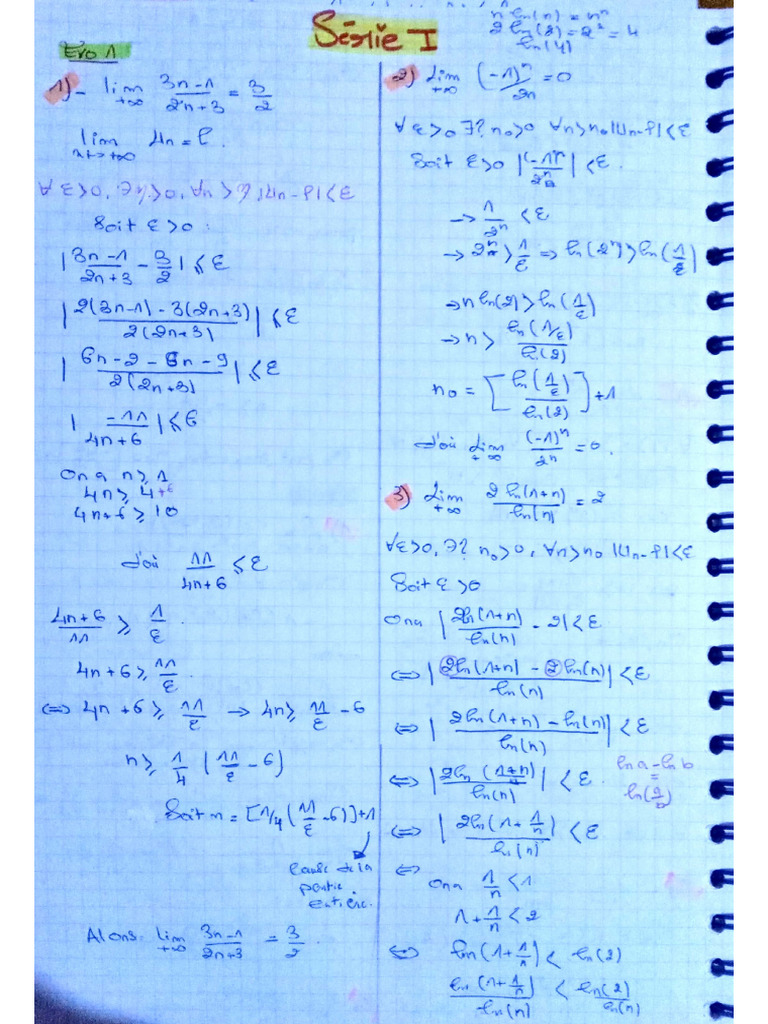 Série I
n ln(n) = nⁿ
2 ln(2) = 2² = 4
ln(4)
Exo 1
1) - lim_{+∞} (3n-1)/(2n+3) = 3/2
lim_{n→+∞} Un = l.
∀ε>0, ∃? n₀>0, ∀n>n₀, |Un-l|<ε
Soit ε>0 :
|(3n-1)/(2n+3) - 3/2| ≤ ε
|(2(3n-1) - 3(2n+3))/(2(2n+3))| ≤ ε
|(6n-2-6n-9)/(2(2n+3))| ≤ ε
|(-11)/(4n+6)| ≤ 6
On a n ≥ 1
4n ≥ 4
4n+6 ≥ 10
d'où 11/(4n+6) ≤ ε
(4n+6)/11 ≥ 1/ε.
4n+6 ≥ 11/ε.
⟺ 4n+6 ≥ 11/ε → 4n ≥ 11/ε - 6
n ≥ 1/4 (11/ε - 6)
Soit n = [1/4(11/ε - 6)]+1
cause de la
partie
entière.
Alors lim_{+∞} (3n-1)/(2n+3) = 3/2.
2) Lim_{+∞} (-1)ⁿ/2n = 0
∀ε>0 ∃? n₀>0 ∀n>n₀ |Un-l|<ε
Soit ε>0 |(-1)ⁿ/2ⁿ| < ε.
→ 1/2ⁿ < ε
→ 2ⁿ > 1/ε ⟹ ln(2ⁿ) > ln(1/ε)
→ n ln(2) > ln(1/ε)
→ n > ln(1/ε)/ln(2)
n₀ = [ln(1/ε)/ln(2)] + 1
d'où Lim_{+∞} (-1)ⁿ/2ⁿ = 0.
3) Lim_{+∞} 2 ln(1+n)/ln(n) = 2
∀ε>0, ∃? n₀>0, ∀n>n₀ |Un-l|<ε
Soit ε>0
On a |2ln(1+n)/ln(n) - 2| < ε
⟺ |(2ln(1+n) - 2ln(n))/ln(n)| < ε
⟺ |(2ln(1+n) - ln(n))/ln(n)| < ε
⟺ |2ln((1+n)/n)/ln(n)| < ε.
ln a - ln b
=
ln(a/b)
⟺ |2ln(1+1/n)/ln(n)| < ε
⟸ On a 1/n < 1
1+1/n < 2
⟺ ln(1+1/n) < ln(2)
ln(1+1/n)/ln(n) < ln(2)/ln(n)